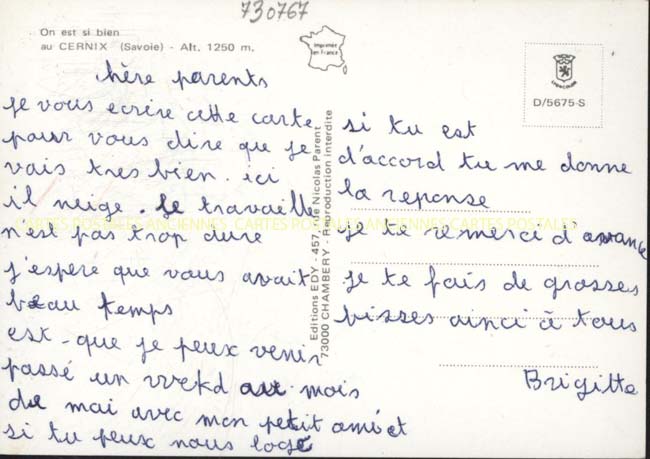 730767
On est si bien
au CERNIX (Savoie) - Alt. 1250 m.
Imprimée
en France
D/5675-S
hère parents
je vous ecrire cette carte
pour vous dire que je
vais tres bien. ici
il neige. le travaille
n'est pas trop dure
j'espère que vous avait
beau temps
est-que je peux venir
passé un wekd au mois
de mai avec mon petit ami et
si tu peux nous logé
Editions EDY - 457, de Nicolas Parent
73000 CHAMBERY - Reproduction interdite
si tu est
d'accord tu me donne
la reponse
je te remerci d'avance
je te fais de grosses
bisses ainci à tous
Brigitte
CARTES POSTALES ANCIENNES CARTES POSTALES ANCIENNES CARTES POSTALES